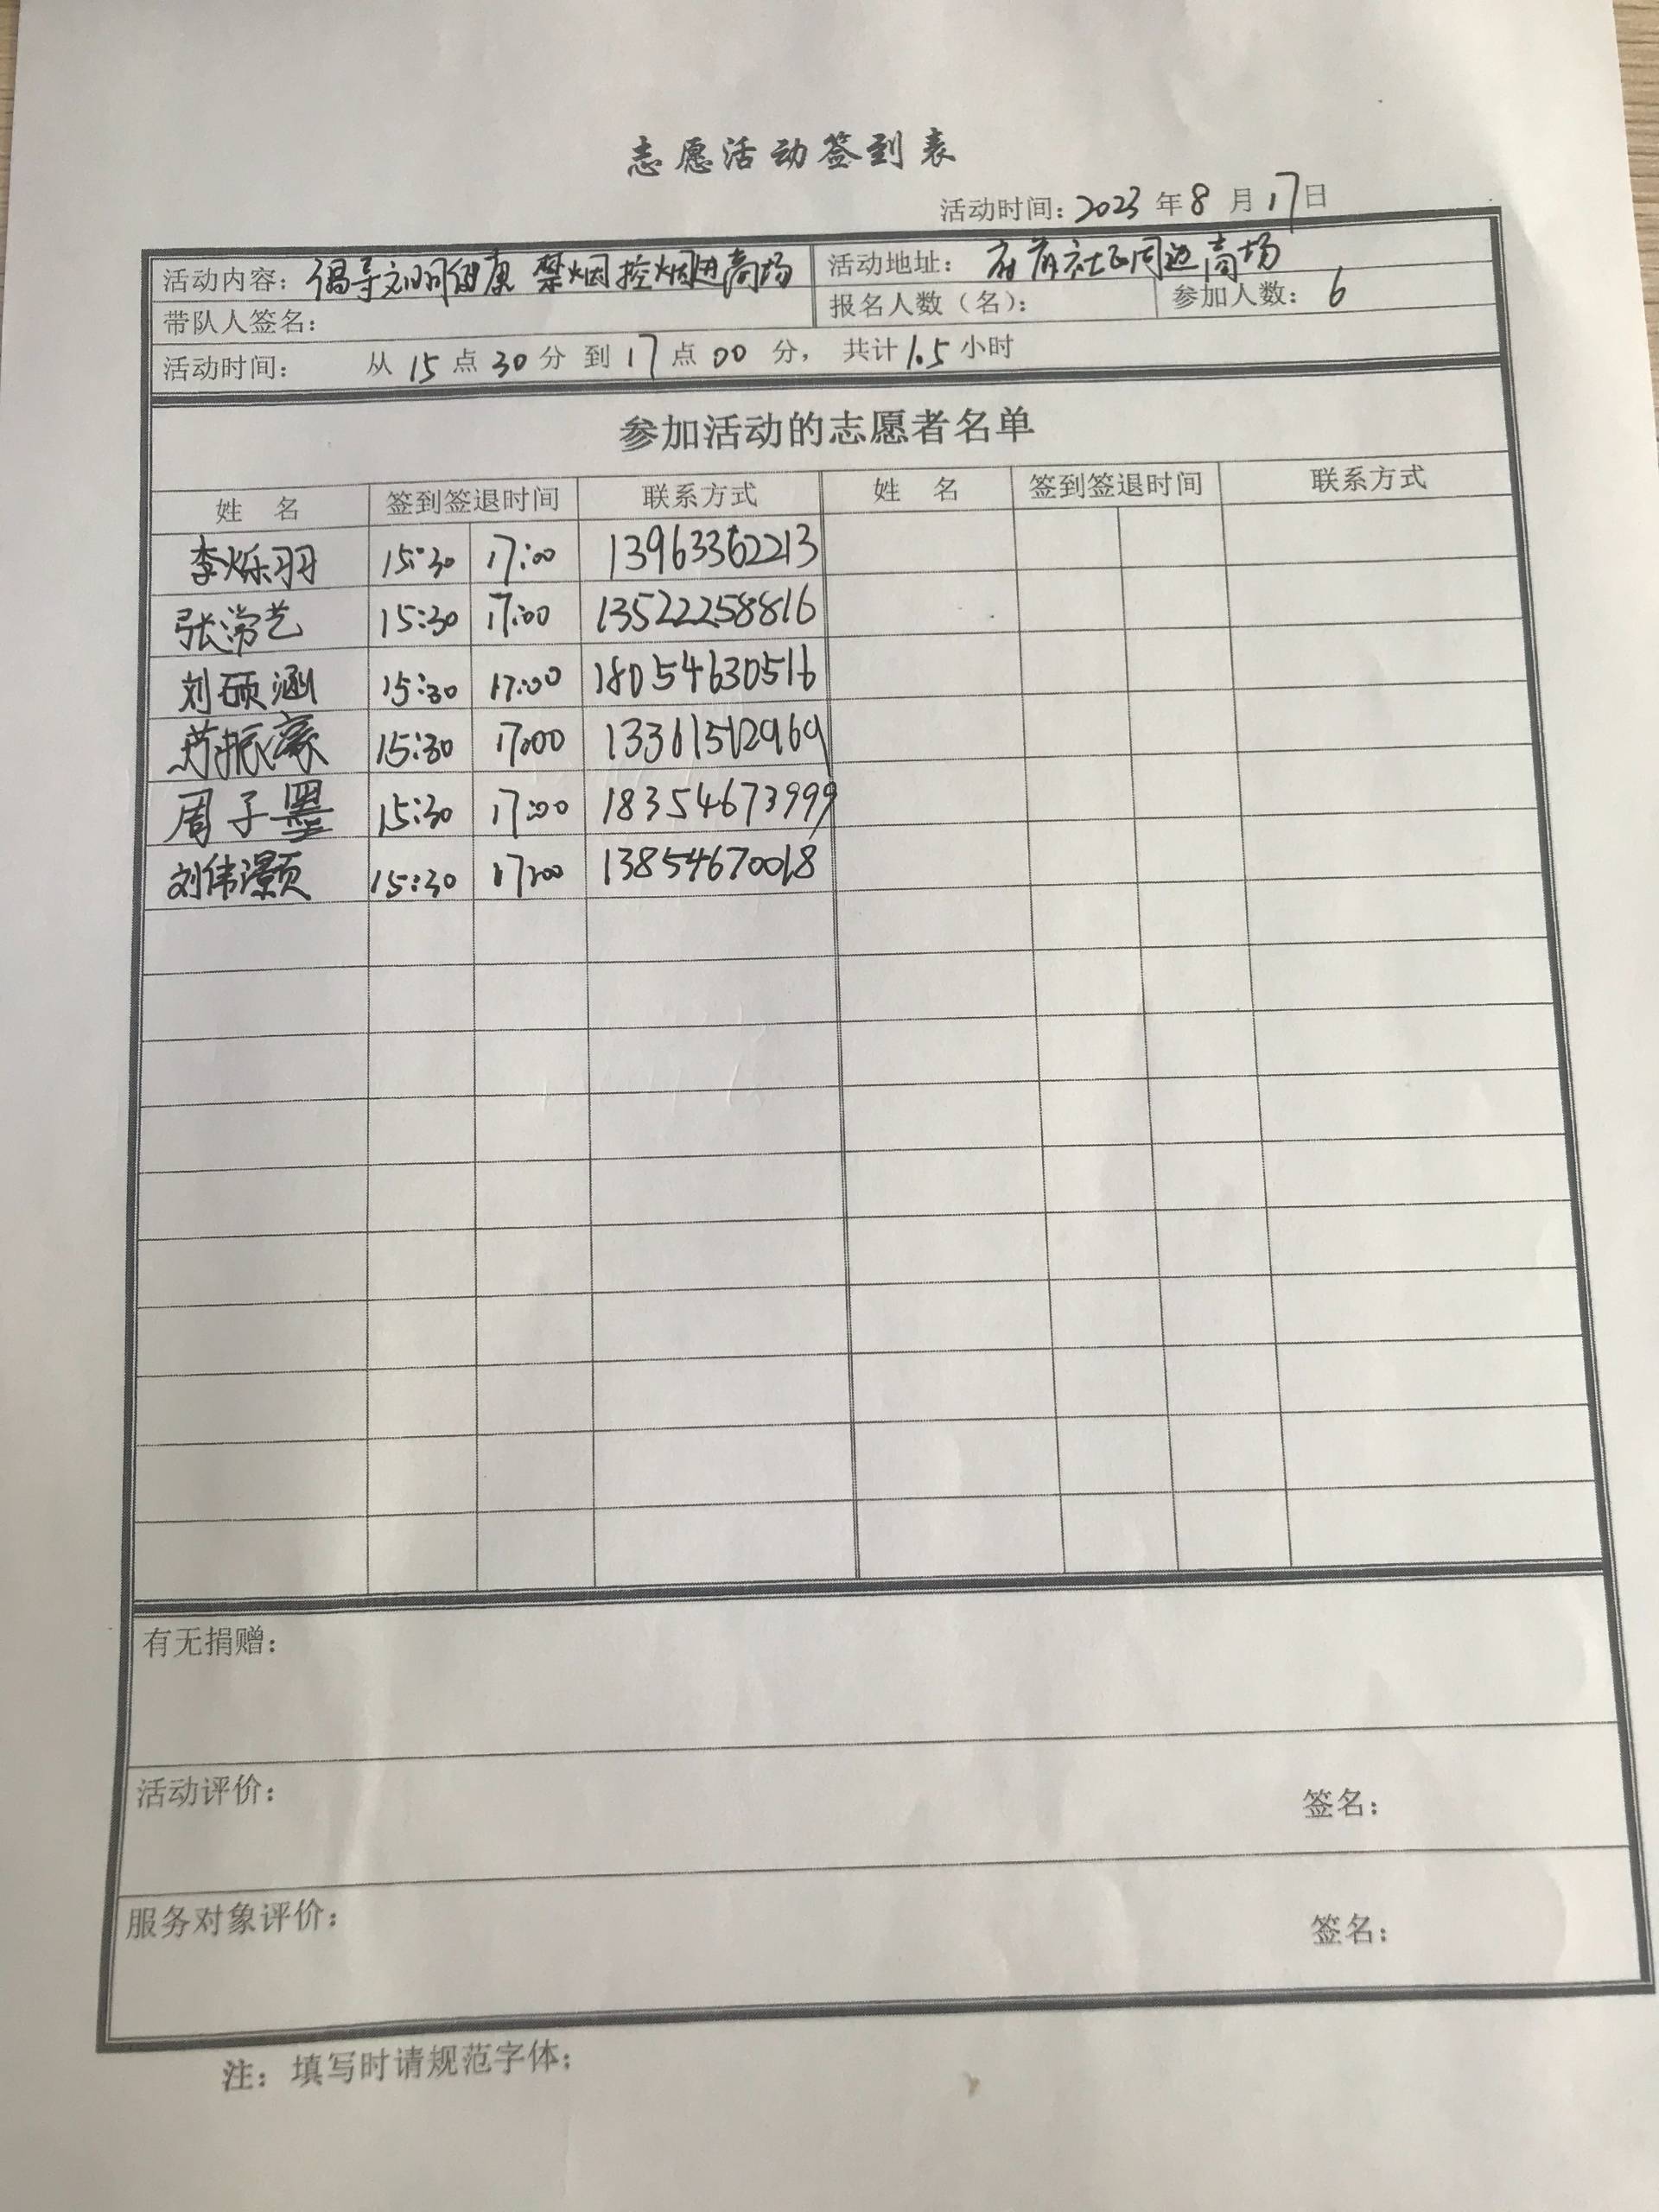 志愿活动签到表
活动时间：2023 年 8 月 17 日
活动内容：倡导文明健康 禁烟控烟进商场 活动地址：府前社区周边商场
带队人签名： 报名人数（名）： 参加人数：6
活动时间： 从 15 点 30 分 到 17 点 00 分， 共计 1.5 小时
参加活动的志愿者名单
姓 名 签到签退时间 联系方式 姓 名 签到签退时间 联系方式
李烁羽 15:30 17:00 13963362213
张常艺 15:30 17:00 13522258816
刘硕涵 15:30 17:00 18054630516
振豪 15:30 17:00 13361512969
周子墨 15:30 17:00 18354673999
刘伟灏 15:30 17:00 13854670018
有无捐赠：
活动评价： 签名：
服务对象评价： 签名：
注：填写时请规范字体；